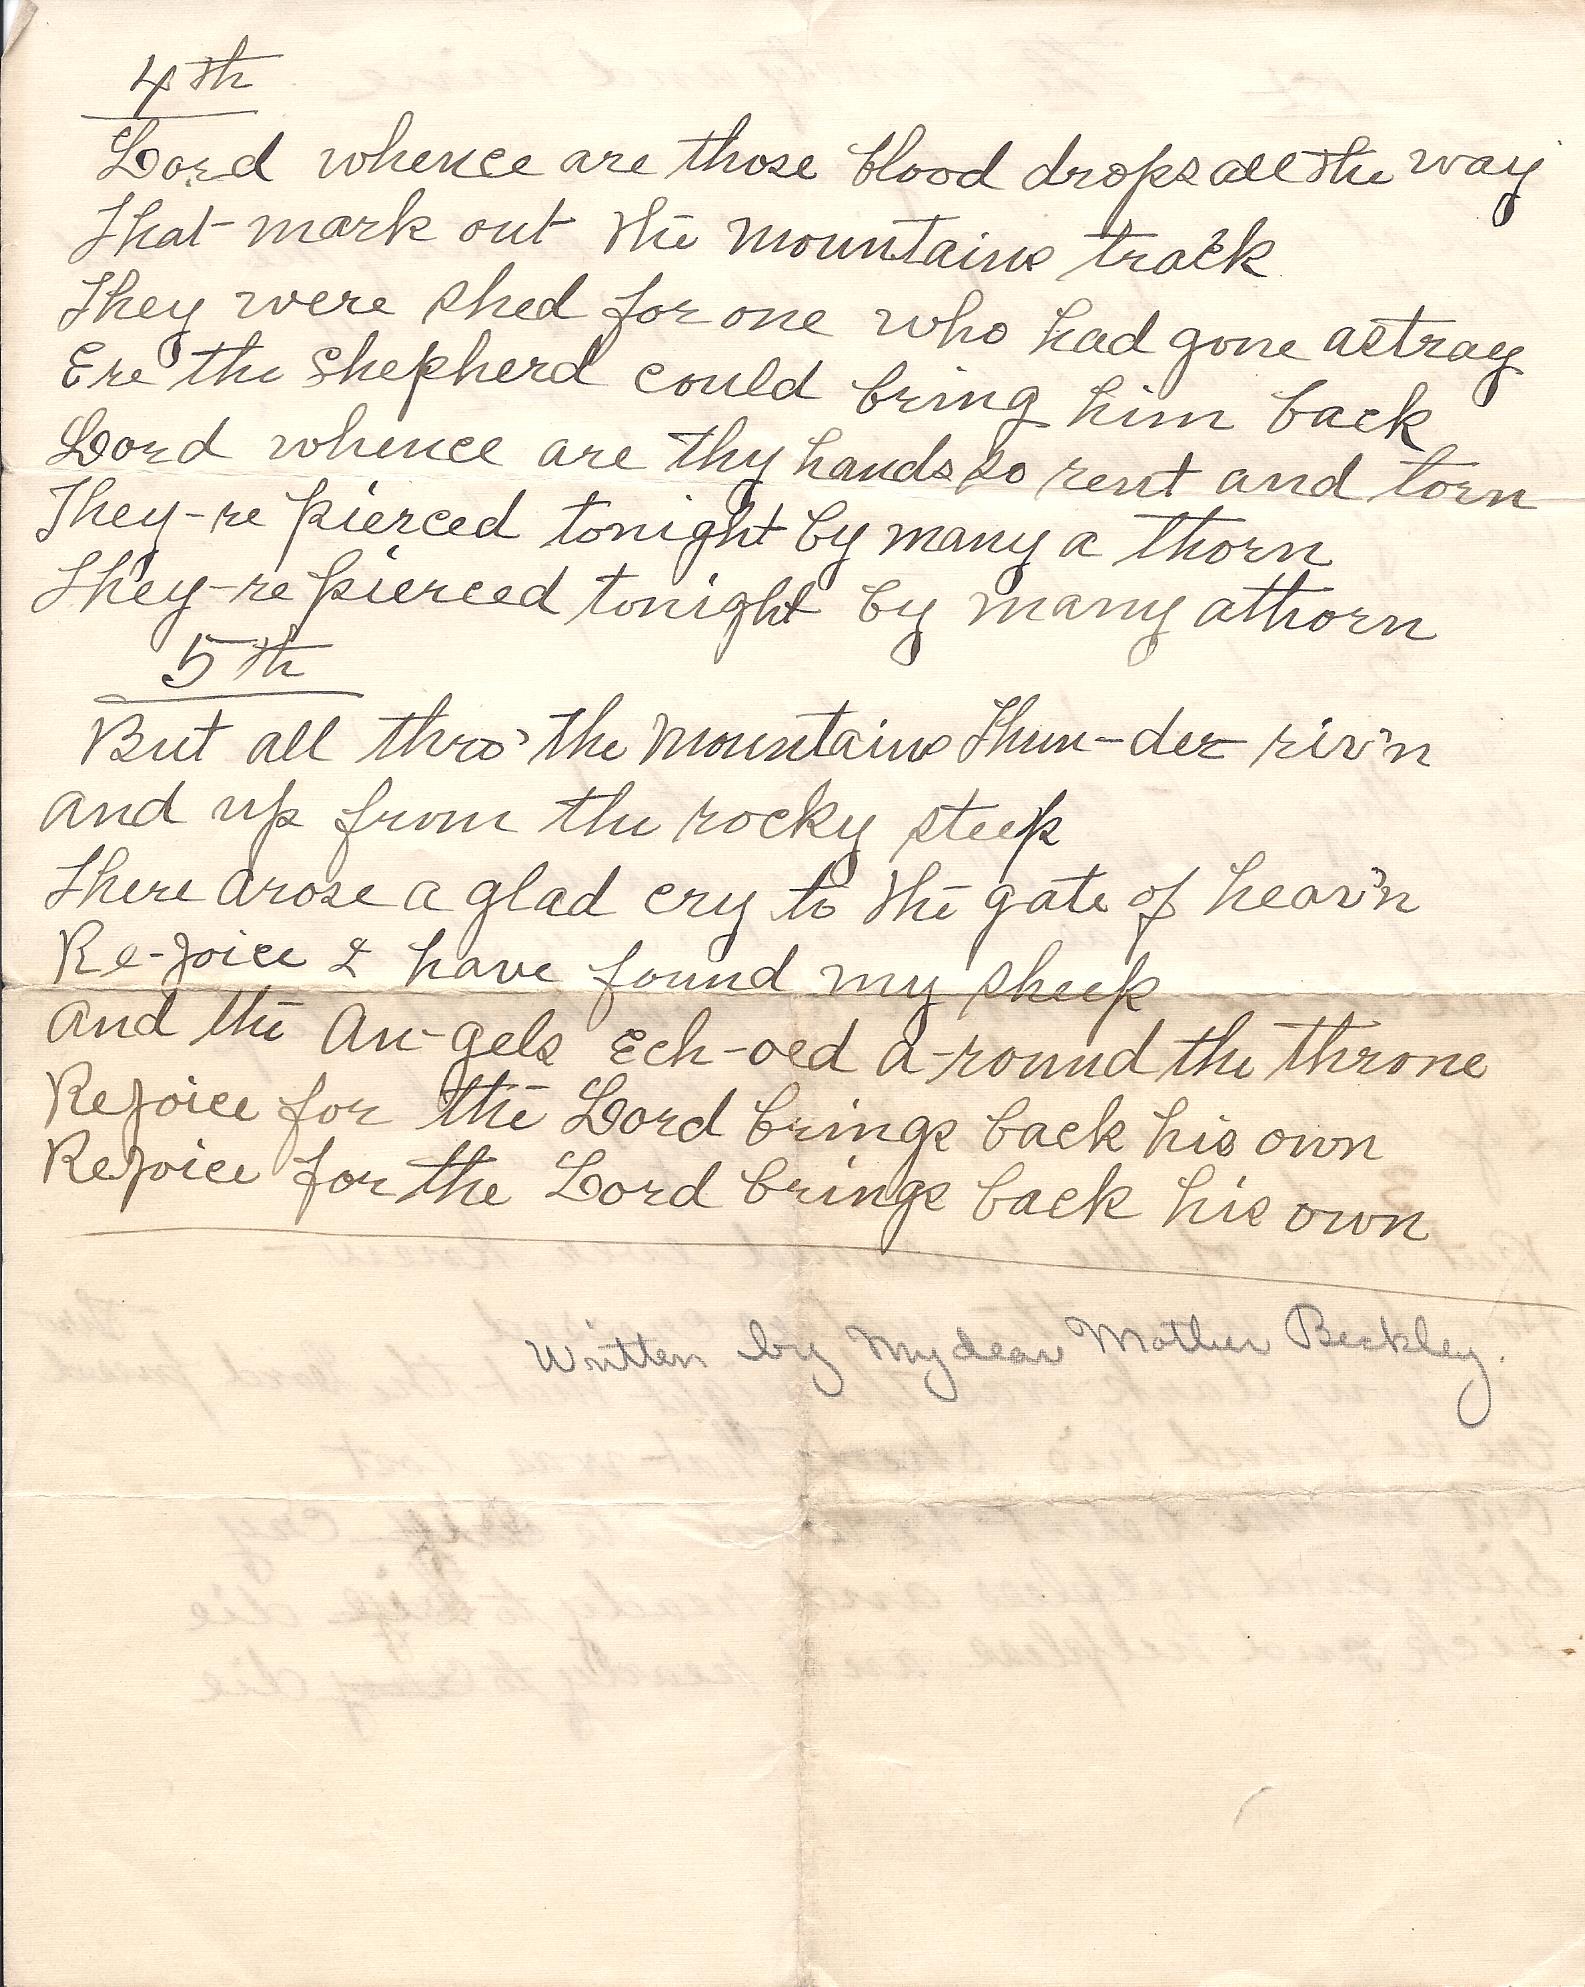 4th
Lord whence are those blood drops all the way
That mark out the mountains track
They were shed for one who had gone astray
Ere the shepherd could bring him back
Lord whence are thy hands so rent and torn
They-re pierced tonight by many a thorn
They-re pierced tonight by many a thorn
5th
But all thro' the mountains Thun-der riv'n
And up from the rocky steep
There arose a glad cry to the gate of heav'n
Re-joice I have found my sheep
And the An-gels Ech-oed a-round the throne
Rejoice for the Lord brings back his own
Rejoice for the Lord brings back his own
Written by My dear Mother Beckley.